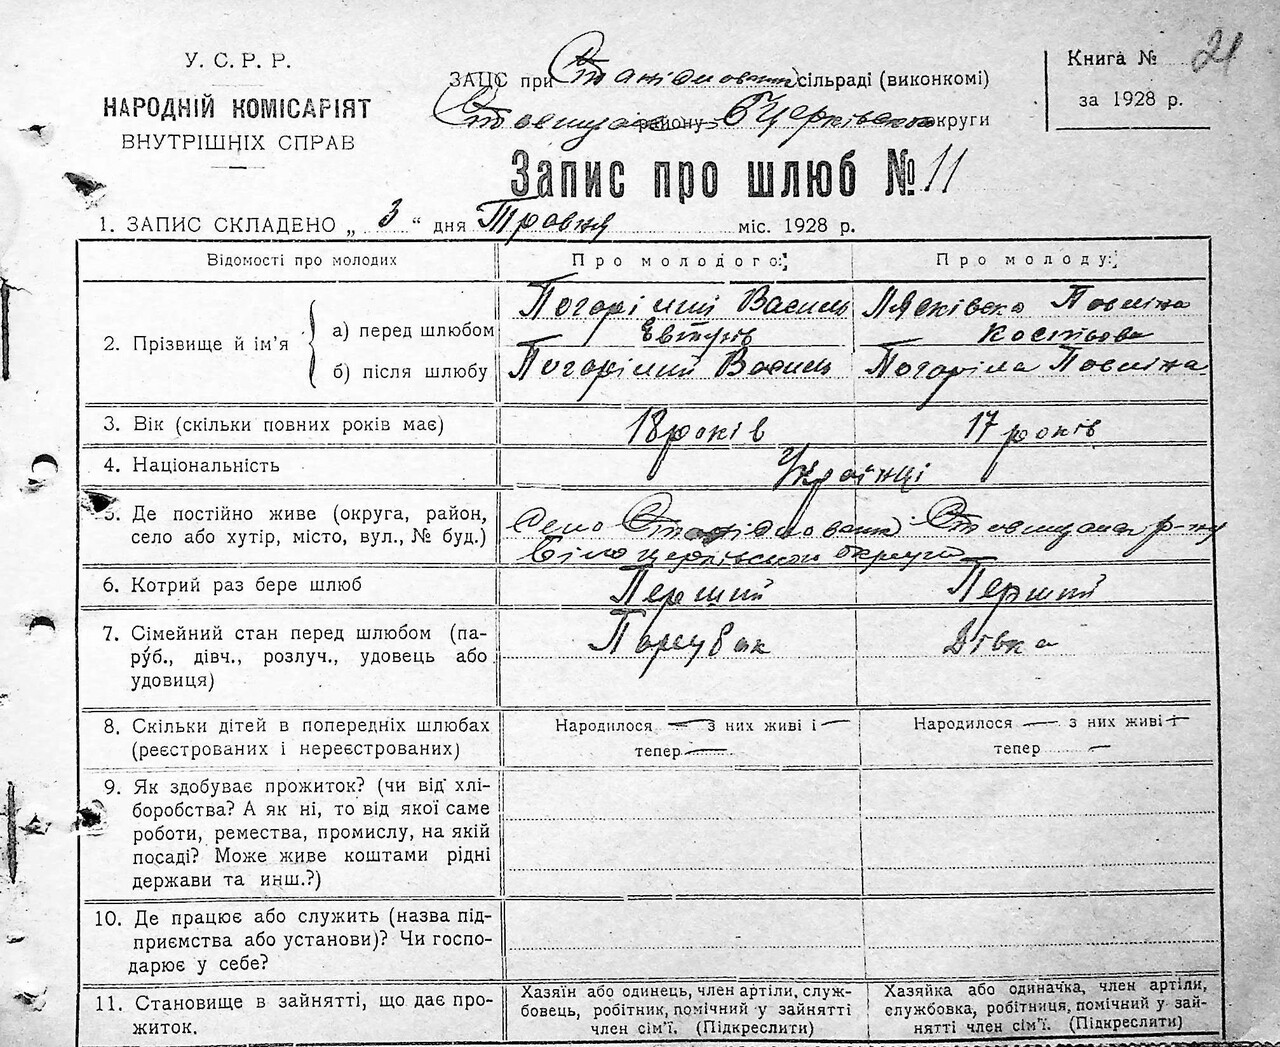 У. С. Р. Р.
НАРОДНІЙ КОМІСАРІЯТ
ВНУТРІШНІХ СПРАВ
ЗАПИС при сільраді (виконкомі)
району БЦерківської округи
Книга № 21
за 1928 р.
Запис про шлюб № 11
1. ЗАПИС СКЛАДЕНО „ 3 “ дня Травня міс. 1928 р.
Відомості про молодих Про молодого: Про молоду:
2. Прізвище й ім'я
а) перед шлюбом Погорілий Василь Лясківска Повліна
Євтухів Костьова
б) після шлюбу Погорілий Василь Погоріла Повліна
3. Вік (скільки повних років має) 18 років 17 років
4. Національність Українці
5. Де постійно живе (округа, район, село або хутір, місто, вул., № буд.) Село р-ну
Білоцерківської округи
6. Котрий раз бере шлюб Перший Перший
7. Сімейний стан перед шлюбом (па-
руб., дівч., розлуч., удовець або Парубок Дівка
удовиця)
8. Скільки дітей в попередніх шлюбах Народилося — з них живі і — Народилося — з них живі і —
(реєстрованих і нереєстрованих) тепер — тепер —
9. Як здобуває прожиток? (чи від хлі-
боробства? А як ні, то від якої саме
роботи, ремества, промислу, на якій
посаді? Може живе коштами рідні
держави та инш.?)
10. Де працює або служить (назва під-
приємства або установи)? Чи госпо-
дарює у себе?
11. Становище в зайнятті, що дає про-
житок.
Хазяїн або одинець, член артіли, служ-
бовець, робітник, помічний у зайнятті
член сім'ї. (Підкреслити)
Хазяйка або одиначка, член артіли,
службовка, робітниця, помічний у зай-
нятті член сім'ї. (Підкреслити)